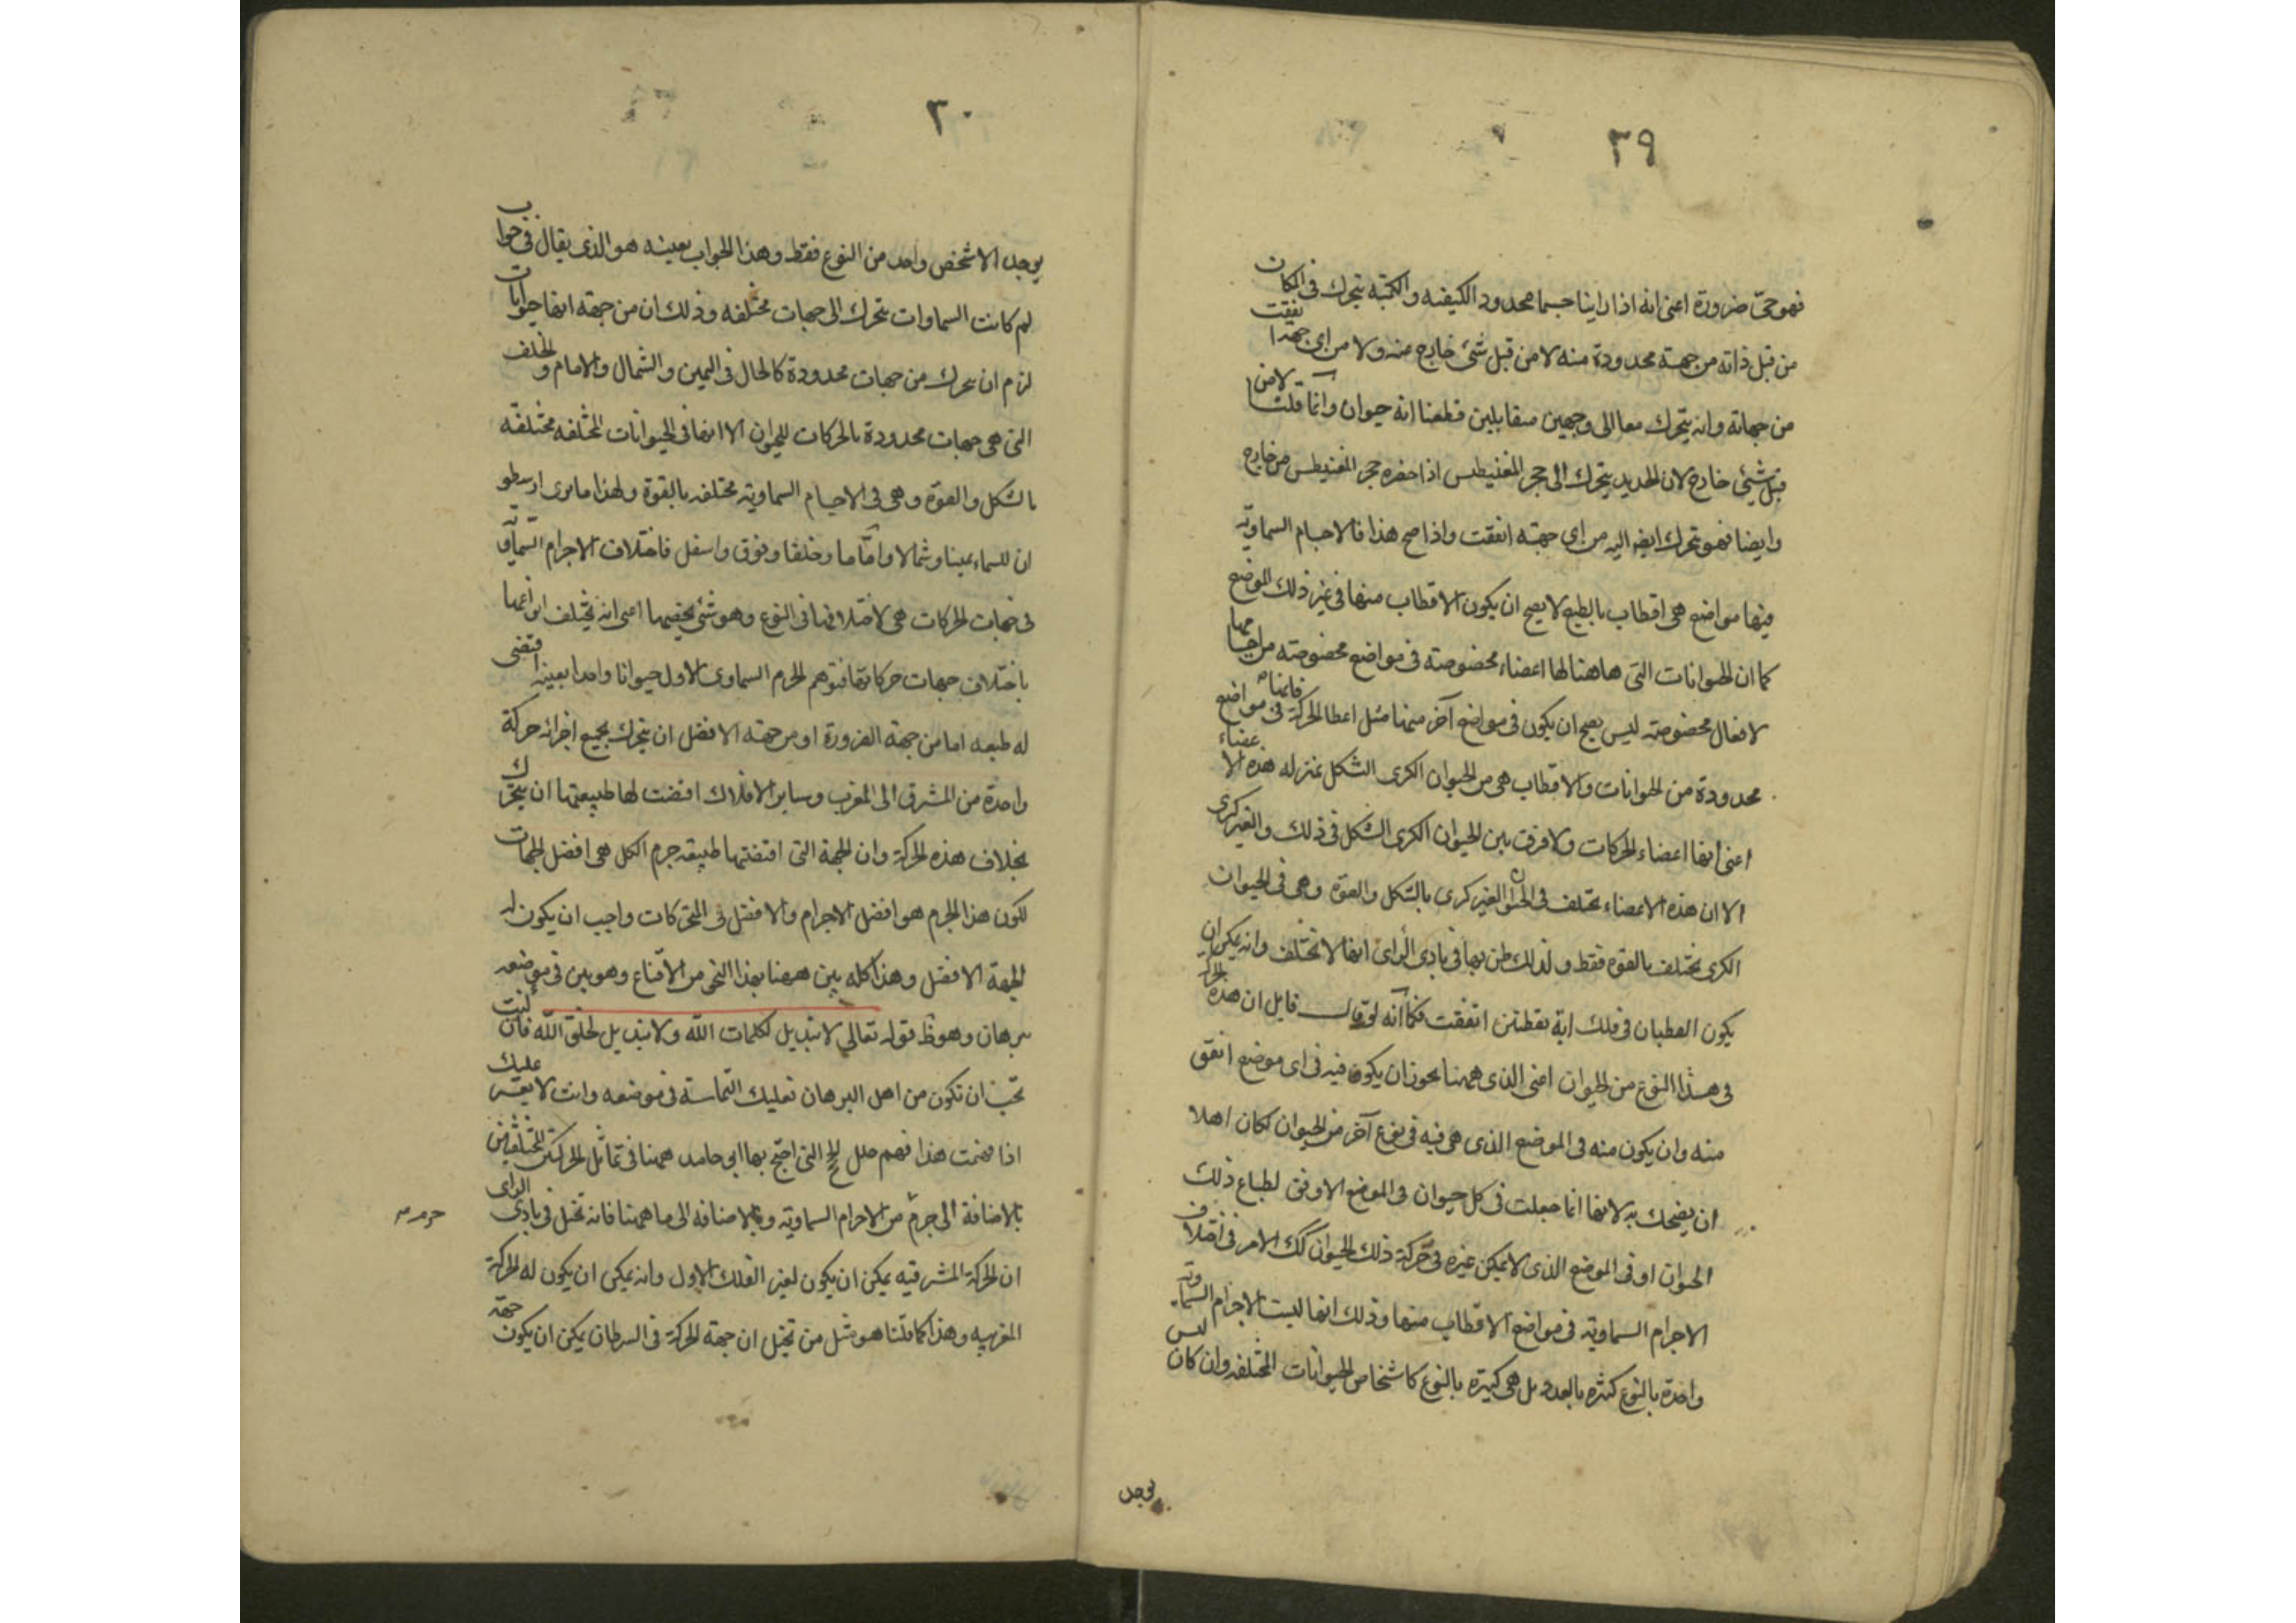 ٣٩
فهو حىّ ضرورة اعنى انه اذا راينا جسما محدود الكيفيه والكميّه يتحرك فى المكان
من قبل ذاته من جهة محدودة منه لا من قبل شئ خارج عنه ولا من اى جهة اتفقت
من جهاته وانه يتحرك معا الى وجهين متقابلين قطعنا انه حيوان وانما قلنا لا من
قبل شيئ خارج لان الحديد يتحرك الى حجر المغنيطس اذا حضره حجر المغنيطس من خارج
وايضا فهو يتحرك ايضه اليه من اى جهته اتفقت واذا صح هذا فالاجسام السماويّه
فيها مواضع هى اقطاب بالطبع لا يصح ان يكون الاقطاب منها فى غير ذلك الموضع
كما ان الحيوانات التى هاهنا لها اعضاء مخصوصته فى مواضع مخصوصته من اجسامها
لافعال مخصوصته ليس يصح ان يكون فى مواضع آخر منها مثل اعطا الحركة فانها فى مواضع
محدودة من الحيوانات والاقطاب هى من الحيوان الكرى الشكل بمنزله هذه الاعضاء
اعنى انها اعضاء الحركات ولا فرق بين الحيوان الكرى الشكل فى ذلك والغير كرى
الا ان هذه الاعضاء تختلف فى الحيوان الغير كرى بالشكل والقوة وهى فى الحيوان
الكرى تختلف بالقوة فقط ولذلك ظن بها فى بادى الراى انها لا تختلف وانه يمكن ان
يكون القطبان فى فلك اية نقطتين اتفقت فكما انه لو قال قايل ان هذه الحركة
فى هذا النوع من الحيوان اعنى الذى ههنا يجوز ان يكون فيه فى اى موضع اتفق
منه وان يكون منه فى الموضع الذى هى فيه فى نوع آخر من الحيوان لكان اهلا
ان يضحك به لانها انما جعلت فى كل حيوان فى الموضع الاوفق لطباع ذلك
الحيوان او فى الموضع الذى لا يمكن غيره فى حركة ذلك الحيوان كك الامر فى اختلاف
الاجرام السماويّه فى مواضع الاقطاب منها وذلك انها ليست الاجرام السماويّه
واحدة بالنوع كثيره بالعدد بل هى كثيره بالنوع كاشخاص الحيوانات المختلفه وان كان ليس
يوجد
٣٠
يوجد الا شخص واحد من النوع فقط وهذا الجواب بعينه هو الذى يقال فى جواب
لم كانت السماوات يتحرك الى جهات مختلفه وذلك ان من جهته انها حيوانات
لزم ان يحرك من جهات محدودة كالحال فى اليمين والشمال والامام والخلف
التى هى جهات محدودة بالحركات للحيوان الا انها فى الحيوانات المختلفه مختلفه
بالشكل والقوة وهى فى الاجسام السماويّه مختلفه بالقوة ولهذا ما يرى ارسطو
ان للسماء يمينا وشمالا واماما وخلفا وفوق واسفل فاختلاف الاجرام السماويّه
فى جهات الحركات هى لاختلافها فى النوع وهو شئ يخصها اعنى انه يختلف انواعها
باختلاف جهات حركاتها فتوهم الجرم السماوى الاول حيوانا واحدا بعينه اقتضى
له طبعه اما من جهة الضرورة او من جهته الافضل ان يتحرك بجميع اجزائه حركة
واحدة من المشرق الى المغرب وساير الافلاك اقتضت لها طبيعتها ان يتحرك
بخلاف هذه الحركة وان الجهة التى اقتضتها طبيعة جرم الكل هى افضل الجهات
لكون هذا الجرم هو افضل الاجرام والافضل فى المتحركات واجب ان يكون له
الجهة الافضل وهذا كله بين ههنا بهذا النحو من الاقناع وهو بين فى موضعه
ببرهان وهو ظ قوله تعالى لا تبديل لكلمات الله ولا تبديل لخلق الله فان كنت
تحب ان تكون من اهل البرهان فعليك التماسه فى موضعه وانت لا يعسر عليك
اذا فهمت هذا فهم خلل التى احتج بها ابى حامد ههنا فى تماثل الحركتين المختلفتين
بالاضافة الى جرم من الاجرام السماويّه وبالاضافه الى ما ههنا فانه تخيل فى بادى الراى
ان الحركة المشرقيه يمكن ان يكون لغير الفلك الاول وانه يمكن ان يكون له الحركة
المغربيه وهذا كما قلنا هو مثل من تخيل ان جهته الحركة فى السرطان يمكن ان يكون جهة